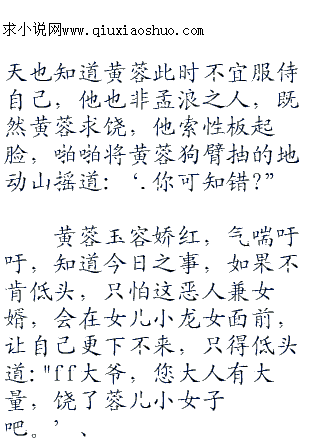 求小说网www.qiuxiaoshuo.com
天也知道黄蓉此时不宜服侍
自己，他也非孟浪之人，既
然黄蓉求饶，他索性板起
脸，啪啪将黄蓉狗臂抽的地
动山摇道：‘.你可知错?”
黄蓉玉容娇红，气喘吁
吁，知道今日之事，如果不
肯低头，只怕这恶人兼女
婿，会在女儿小龙女面前，
让自己更下不来，只得低头
道:"ff大爷，您大人有大
量，饶了蓉儿小女子
吧。’、